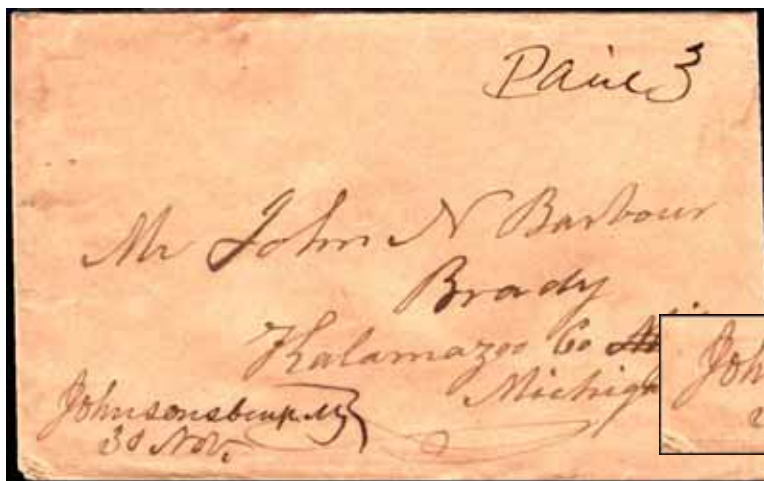 Paid 3
Mr John N Barbour
Brady
Kalamazoo Co
Michig
Johnsonsburg
30 Nov.
Joh